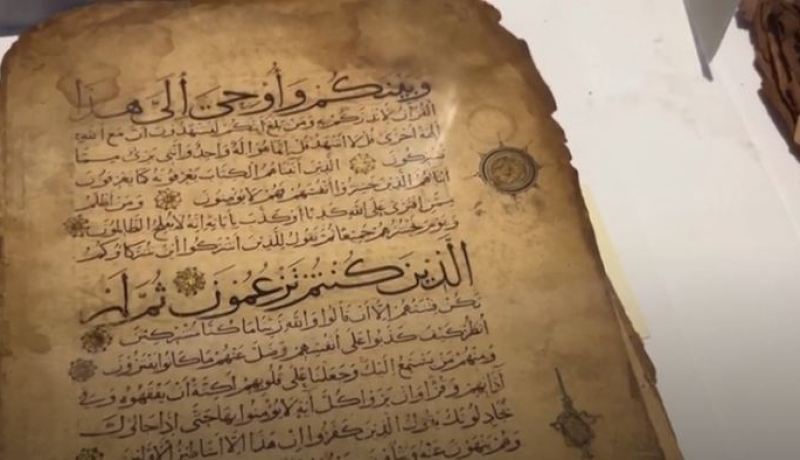 وبينكم وأوحي إلي هذا
القرآن لأنذركم به ومن بلغ أئنكم لتشهدون أن مع الله
آلهة أخرى قل لا أشهد قل إنما هو إله واحد وإنني بريء مما
تشركون الذين آتيناهم الكتاب يعرفونه كما يعرفون
أبناءهم الذين خسروا أنفسهم فهم لا يؤمنون ومن أظلم
ممن افترى على الله كذبا أو كذب بآياته إنه لا يفلح الظالمون
ويوم نحشرهم جميعا ثم نقول للذين أشركوا أين شركاؤكم
الذين كنتم تزعمون ثم لم
تكن فتنتهم إلا أن قالوا والله ربنا ما كنا مشركين
انظر كيف كذبوا على أنفسهم وضل عنهم ما كانوا يفترون
ومنهم من يستمع إليك وجعلنا على قلوبهم أكنة أن يفقهوه وفي
آذانهم وقرا وإن يروا كل آية لا يؤمنوا بها حتى إذا جاؤوك
يجادلونك يقول الذين كفروا إن هذا إلا أساطير الأولين
وهم ينهون عنه